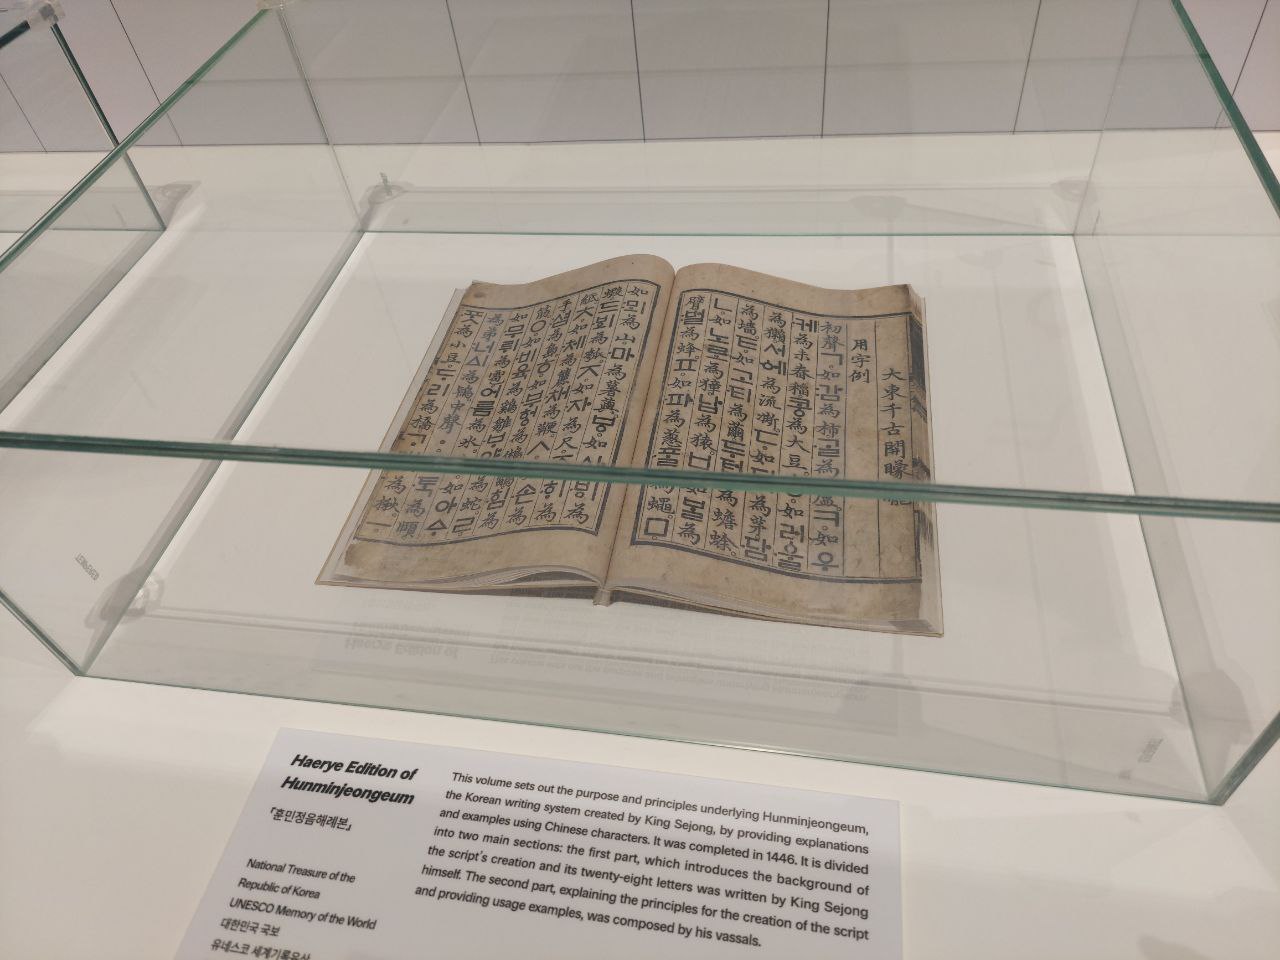 大東千古開矇矓
用字例
初聲ㄱ。如감為柿。ᄀᆞᆯ為蘆。ㅋ。如우
케為未舂稻。콩為大豆。ㆁ。如러울
為獺。서에為流凘。ㄷ。如뒤為茅。담
為墻。ㅌ。如고티為繭。두텁為蟾蜍。
ㄴ。如노로為獐。납為猿。ㅂ。如ᄇᆞᆯ為
臂。벌為蜂。ㅍ。如파為葱。ᄑᆞᆯ為蠅。ㅁ。
如뫼為山。마為薯藇。ㅸ。如사ᄫᅵ為
蝦。드ᄫᅴ為瓠。ㅈ。如자為尺。죠ᄒᆡ為
紙。ㅊ。如체為籭。채為鞭。ㅅ。如손為
手。셤為島。ㅎ。如부헝為鵂鶹。힘為
筋。ㆆ。如비육為鷄雛。ᄇᆞ얌為蛇。ㄹ。
如무뤼為雹。어름為氷。ㅿ。如아ᅀᆞ
為弟。너ᅀᅵ為鴇。中聲ㆍ。如ᄐᆞᆨ為頤。
ᄑᆞᆺ為小豆。ᄃᆞ리為橋。ᄀᆞ래為楸。ㅡ。
Haerye Edition of
Hunminjeongeum
『훈민정음해례본』
National Treasure of the
Republic of Korea
UNESCO Memory of the World
대한민국 국보
유네스코 세계기록유산
This volume sets out the purpose and principles underlying Hunminjeongeum,
the Korean writing system created by King Sejong, by providing explanations
and examples using Chinese characters. It was completed in 1446. It is divided
into two main sections: the first part, which introduces the background of
the script's creation and its twenty-eight letters was written by King Sejong
himself. The second part, explaining the principles for the creation of the script
and providing usage examples, was composed by his vassals.